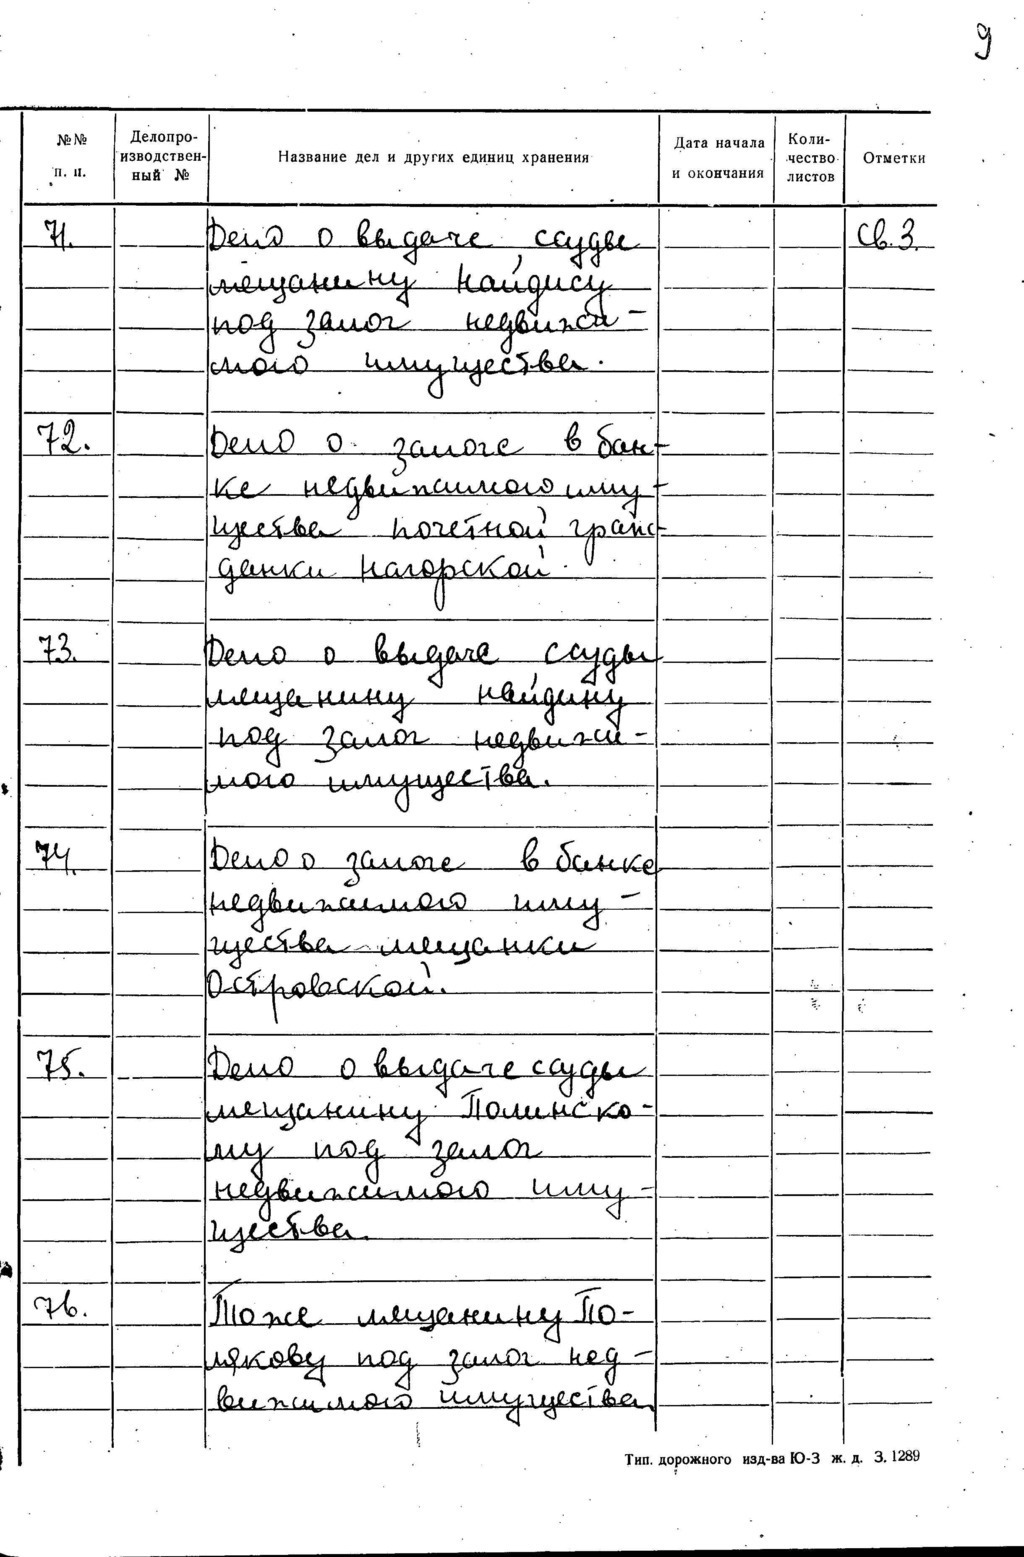 9
№№ п. п.
Делопро-
изводствен-
ный №
Название дел и других единиц хранения
Дата начала
и окончания
Коли-
чество
листов
Отметки
71. Дело о выдаче ссуды Св. 3.
мещанину Найдису
под залог недвижи-
мого имущества.
72. Дело о залоге в бан-
ке недвижимого иму-
щества почетной граж-
данки Нагорской.
73. Дело о выдаче ссуды
мещанину Найдину
под залог недвижи-
мого имущества.
74. Дело о залоге в банке
недвижимого иму-
щества мещанки
Островской.
75. Дело о выдаче ссуды
мещанину Полинско-
му под залог
недвижимого иму-
щества.
76. То же мещанину По-
лякову под залог нед-
вижимого имущества
Тип. дорожного изд-ва Ю-З ж. д. З. 1289